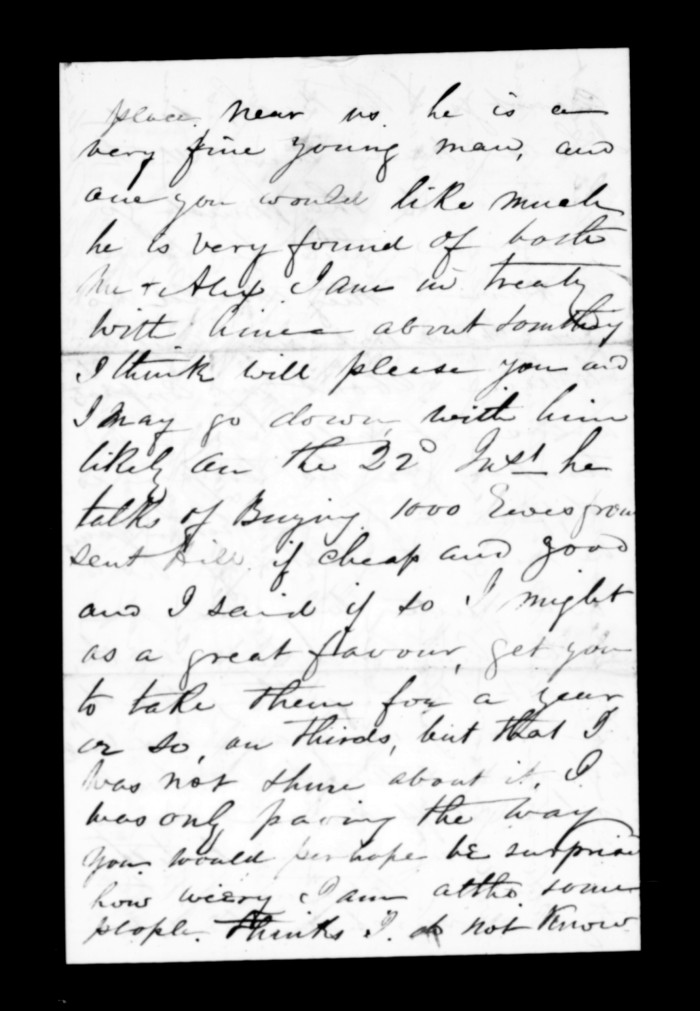 place near us. he is a
very fine young man, and
one you would like much
he is very found of both
Me & Alex. I am in treaty
with him about somthing
I think will please you and
I may go down, with him
likely on the 22d Inst he
talks of Buying 1000 Ewes from
sent Hill if cheap and good
and I said if so I might
as a great flavour, get you
to take them for a year
or so, on thirds, but that I
was not shure about it. I
was only paving the way
you would perhaps be surprised
how weery I am altho some
people. thinks I. do not Know